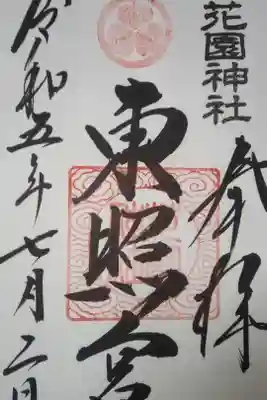 花園神社
奉拝
東照宮
令和五年七月二日